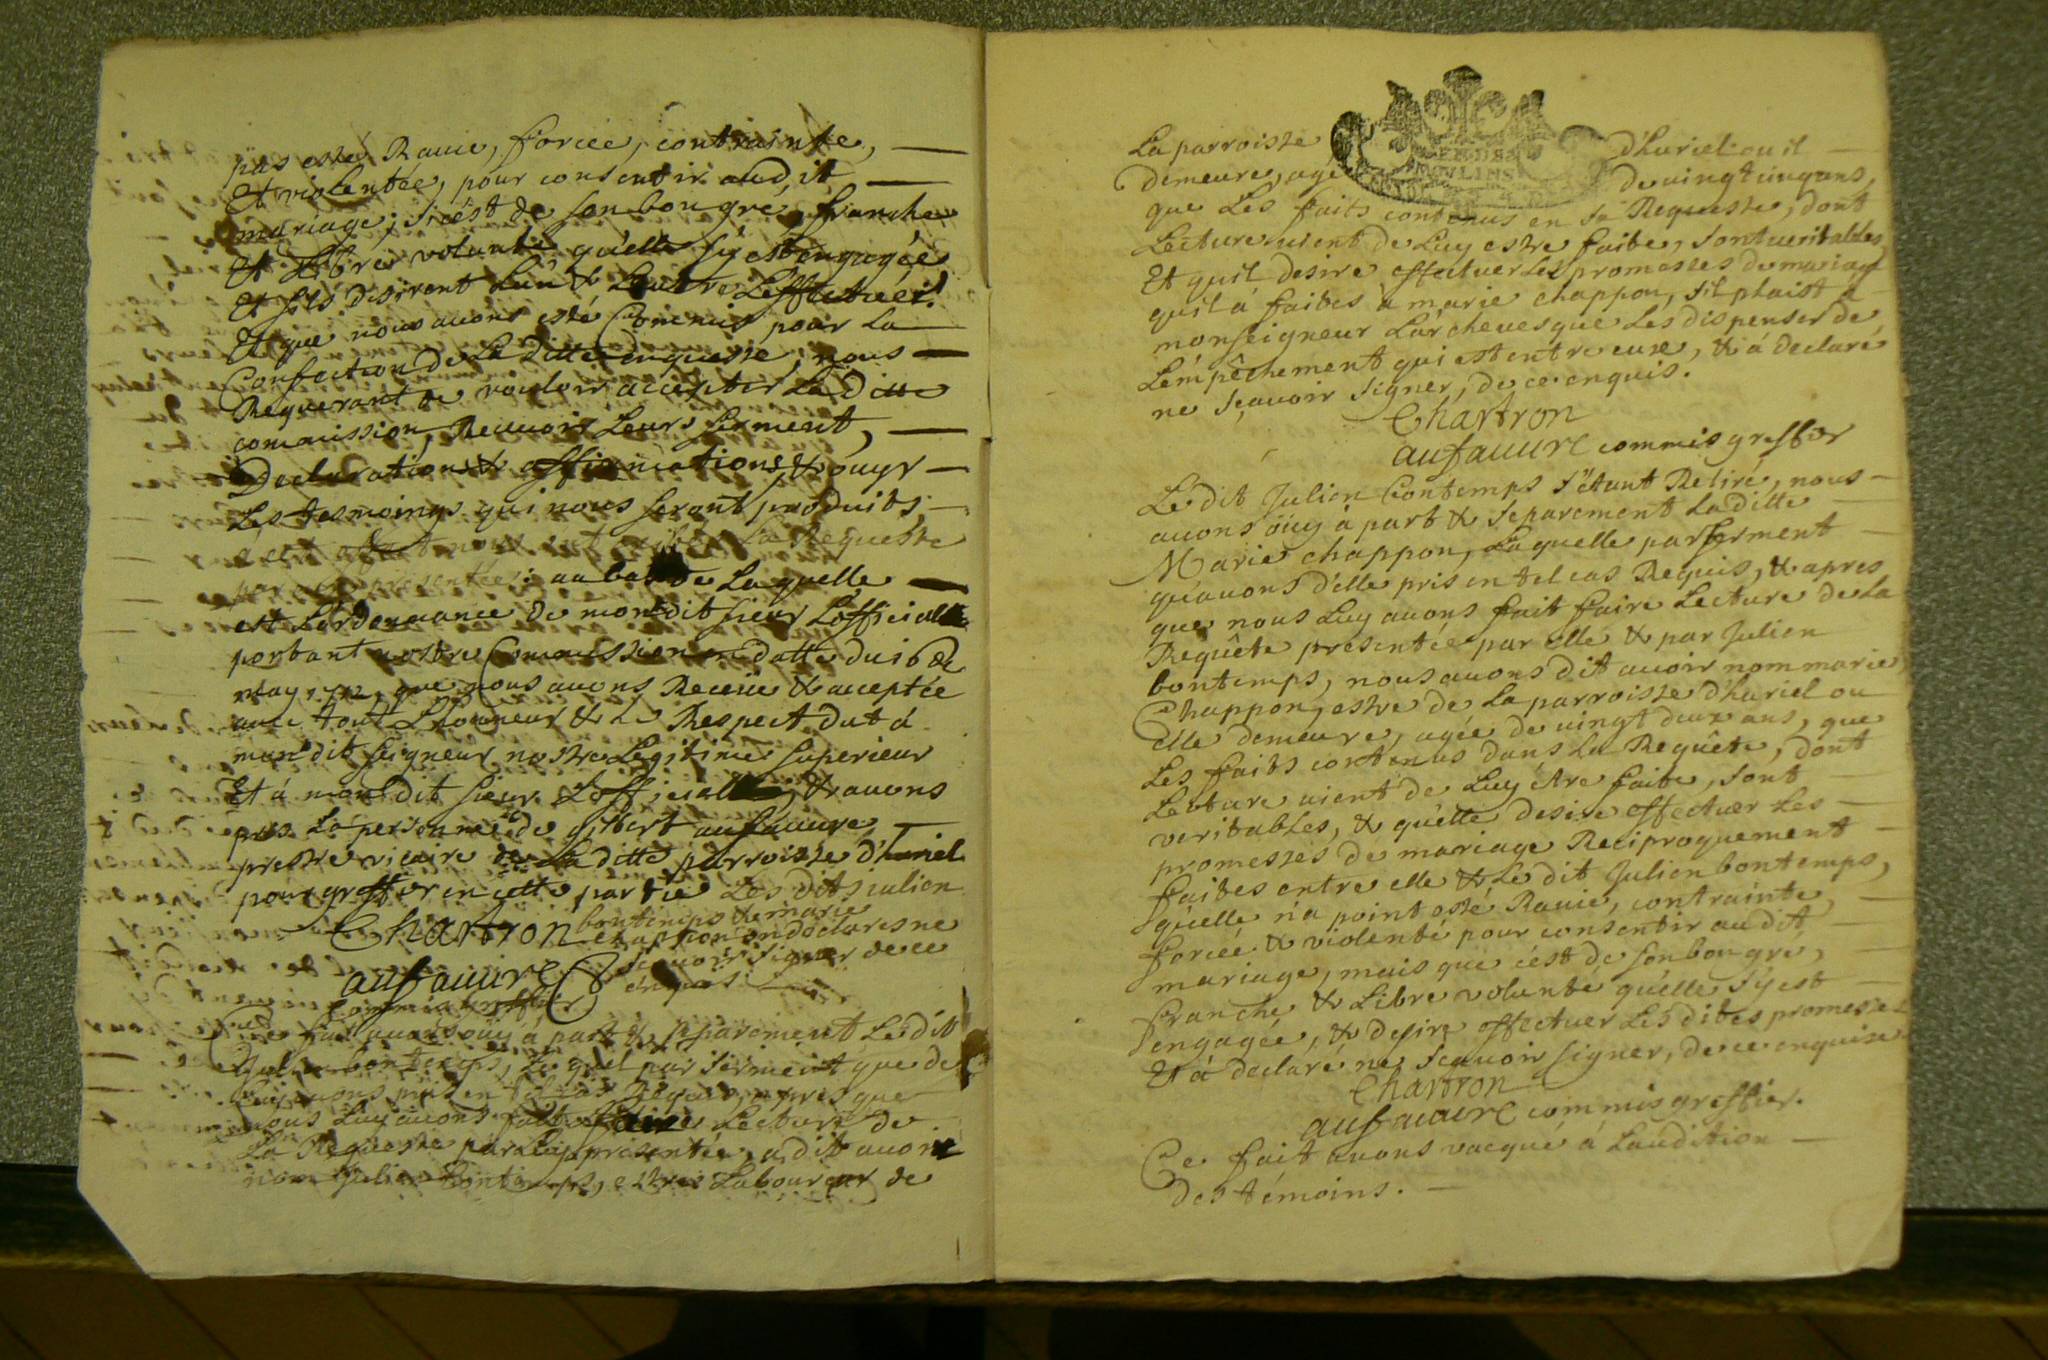 pas esté Ravie, forcée, contrainte,
Et violentée, pour consentir audit
mariage, si c'est de son bon gre, franche
Et libre volunté qu'elle s'y est engagée
Et s'ils desirent L'un & L'autre L'effectuer!
Et que nous avons esté Commis pour La
Confection de La ditte enqueste, nous
Requerant de vouloir accepter La ditte
commission, Recevoir Leurs serment,
Declarations & affirmations & ouyr
Les tesmoings qui nous seront produits
La Requeste
presentée: au bas de Laquelle
est L'ordonnance de mondit sieur L'official
portant nostre Commission en datte du 16 de
may 1712, que nous avons Receüe & acceptée
avec tout L'honneur & Le Respect dut à
mondit seigneur nostre Legitime superieur
Et à mondit sieur L'official, & avons
pris La personne de gilbert aufauure
prestre vicaire de La ditte parroisse d'huriel
pour greffier en cette partie Les dits julien
bontemps & marie
Chartron chappon ont declares ne
sçavoir signer de ce
aufauure enquis
Commis greffier
Ce fait avons oüy à part & separement Le dit
Julien bontemps, Lequel par serment que de
Luy avons pris en tel cas Requis, apres que
nous Luy avons fait faire Lecture de
La Requeste par Luy presentée, a dit avoir
nom Julien Bontemps, estre Laboureur de
La parroisse d'huriel ou il
GEN DE
MOVLINS
demeure, agé de vingt cinq ans,
que Les faits contenus en sa Requeste, dont
Lecture vient de Luy estre faite, sont veritables
Et qu'il desire effectuer Les promesses de mariage
qu'il à faites à marie chappon, s'il plaist a
monseigneur L'archevesque Les dispenser de
L'empêchement qui est entre eux, & à declaré
ne sçavoir signer, de ce enquis.
Chartron
aufauure commis greffier
Le dit Julien Contemps s'étant Retiré, nous
avons oüy à part & separement La ditte
Marie chappon, Laquelle par serment
qu'avons d'elle pris en tel cas Requis, & apres
que nous Luy avons fait faire Lecture de La
Requête presentée par elle & par Julien
bontemps, nous avons dit avoir nom marie
Chappon, estre de La parroisse d'huriel ou
elle demeure, agée de vingt deux ans, que
Les faits contenus dans La Requête, dont
Lecture vient de Luy être faite, sont
veritables, & qu'elle desire effectuer Les
promesses de mariage Reciproquement
faites entre elle & Le dit Julien bontemps,
qu'elle n'a point esté Ravie, contrainte,
forcée & violenté pour consentir au dit
mariage, mais que c'est de son bon gre,
franche & Libre volunté qu'elle s'y est
engagée, & desire effectuer Les dites promesses
Et à declaré ne sçavoir signer, de ce enquise
Chartron
aufauure commis greffier.
Ce fait avons vacqué à L'audition
des témoins.